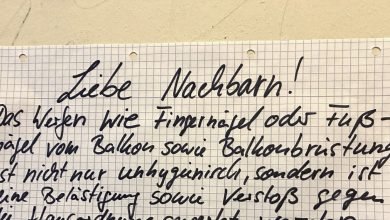 Liebe Nachbarn!
Das Werfen wie Fingernägel oder Fuß-
nägel vom Balkon sowie Balkonbrüstung
ist nicht nur unhygienisch, sondern ist
eine Belästigung sowie Verstoß gegen